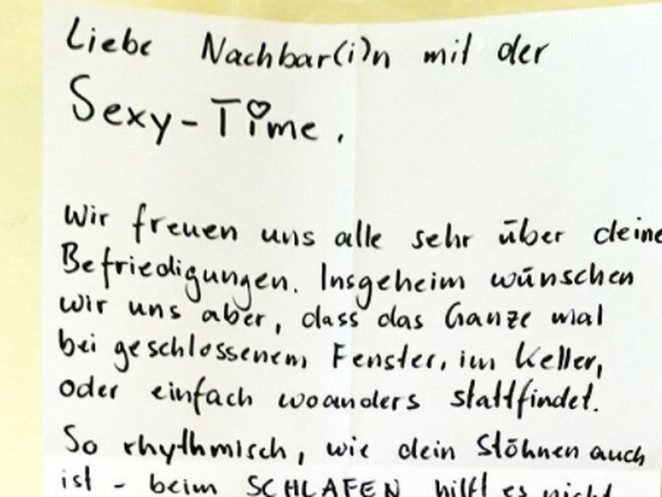 Liebe Nachbar(i)n mit der
Sexy-Time.
Wir freuen uns alle sehr über deine
Befriedigungen. Insgeheim wünschen
wir uns aber, dass das Ganze mal
bei geschlossenem Fenster, im Keller,
oder einfach woanders stattfindet.
So rhythmisch, wie dein Stöhnen auch
ist - beim SCHLAFEN hilft es nicht